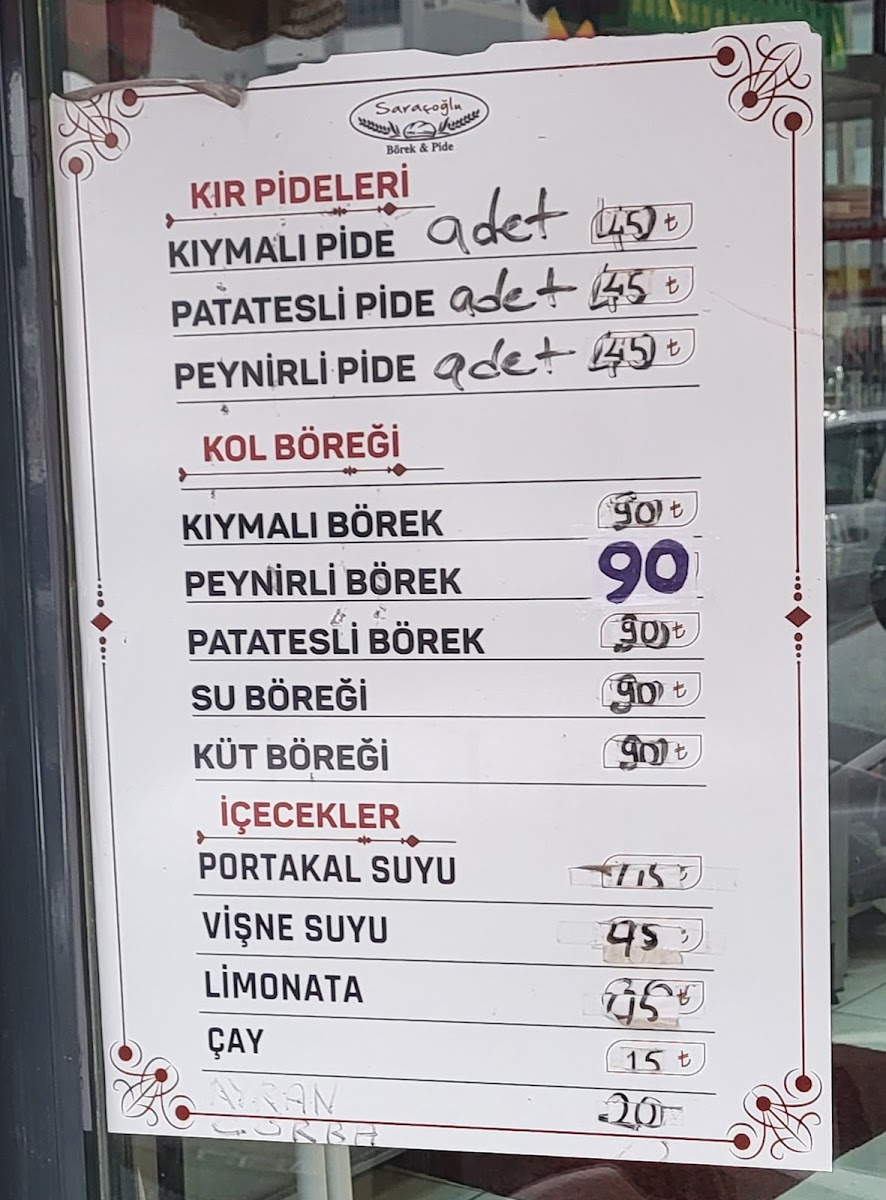 Saraçoğlu
Börek & Pide
KIR PİDELERİ
KIYMALI PİDE adet 45 ₺
PATATESLİ PİDE adet 45 ₺
PEYNİRLİ PİDE adet 45 ₺
KOL BÖREĞİ
KIYMALI BÖREK 90 ₺
PEYNİRLİ BÖREK 90
PATATESLİ BÖREK 90 ₺
SU BÖREĞİ 90 ₺
KÜT BÖREĞİ 90 ₺
İÇECEKLER
PORTAKAL SUYU
VİŞNE SUYU 45
LİMONATA ₺
ÇAY 15 ₺
AYRAN 20
ÇORBA